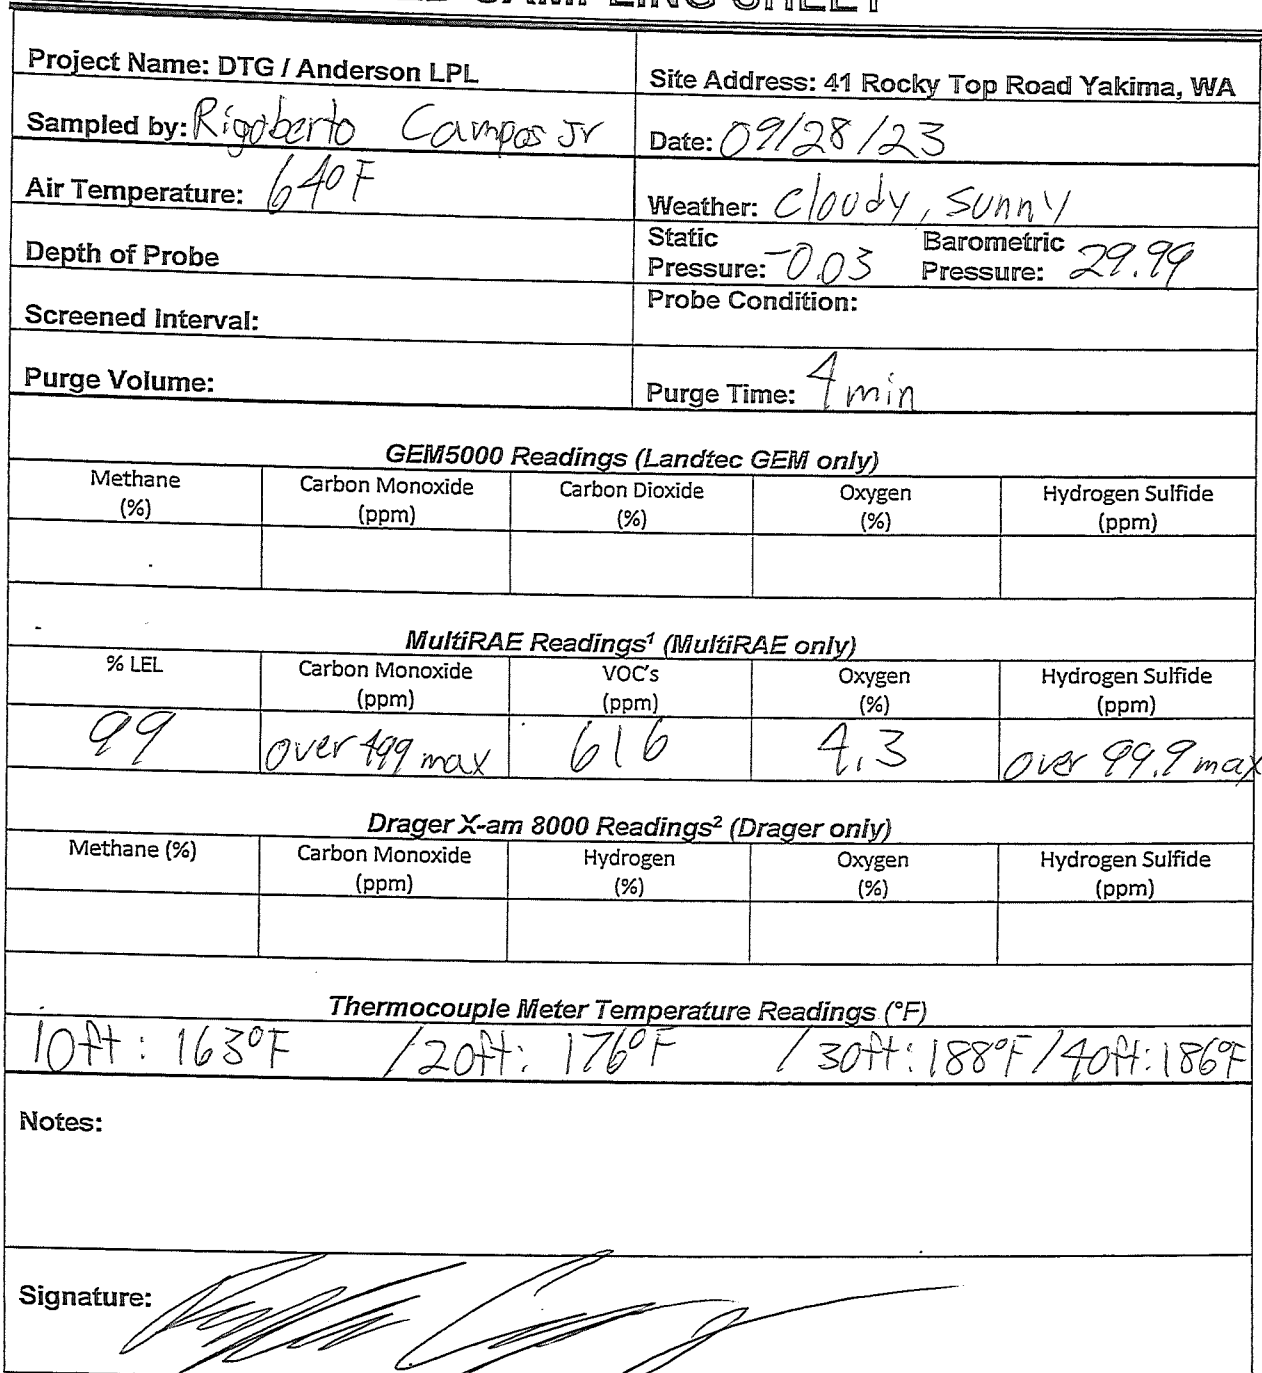 SAMPLING SHEET
Project Name: DTG / Anderson LPL
Site Address: 41 Rocky Top Road Yakima, WA
Sampled by: Rigoberto Campos Jr
Date: 09/28/23
Air Temperature: 64°F
Weather: cloudy, sunny
Depth of Probe
Static Pressure: -0.03 Barometric Pressure: 29.99
Screened Interval:
Probe Condition:
Purge Volume:
Purge Time: 4 min
GEM5000 Readings (Landtec GEM only)
Methane (%) Carbon Monoxide (ppm) Carbon Dioxide (%) Oxygen (%) Hydrogen Sulfide (ppm)
MultiRAE Readings¹ (MultiRAE only)
% LEL Carbon Monoxide (ppm) VOC's (ppm) Oxygen (%) Hydrogen Sulfide (ppm)
99 over 499 max 616 4.3 over 99.9 max
Drager X-am 8000 Readings² (Drager only)
Methane (%) Carbon Monoxide (ppm) Hydrogen (%) Oxygen (%) Hydrogen Sulfide (ppm)
Thermocouple Meter Temperature Readings (°F)
10ft: 163°F /20ft: 176°F /30ft: 188°F /40ft: 186°F
Notes:
Signature: